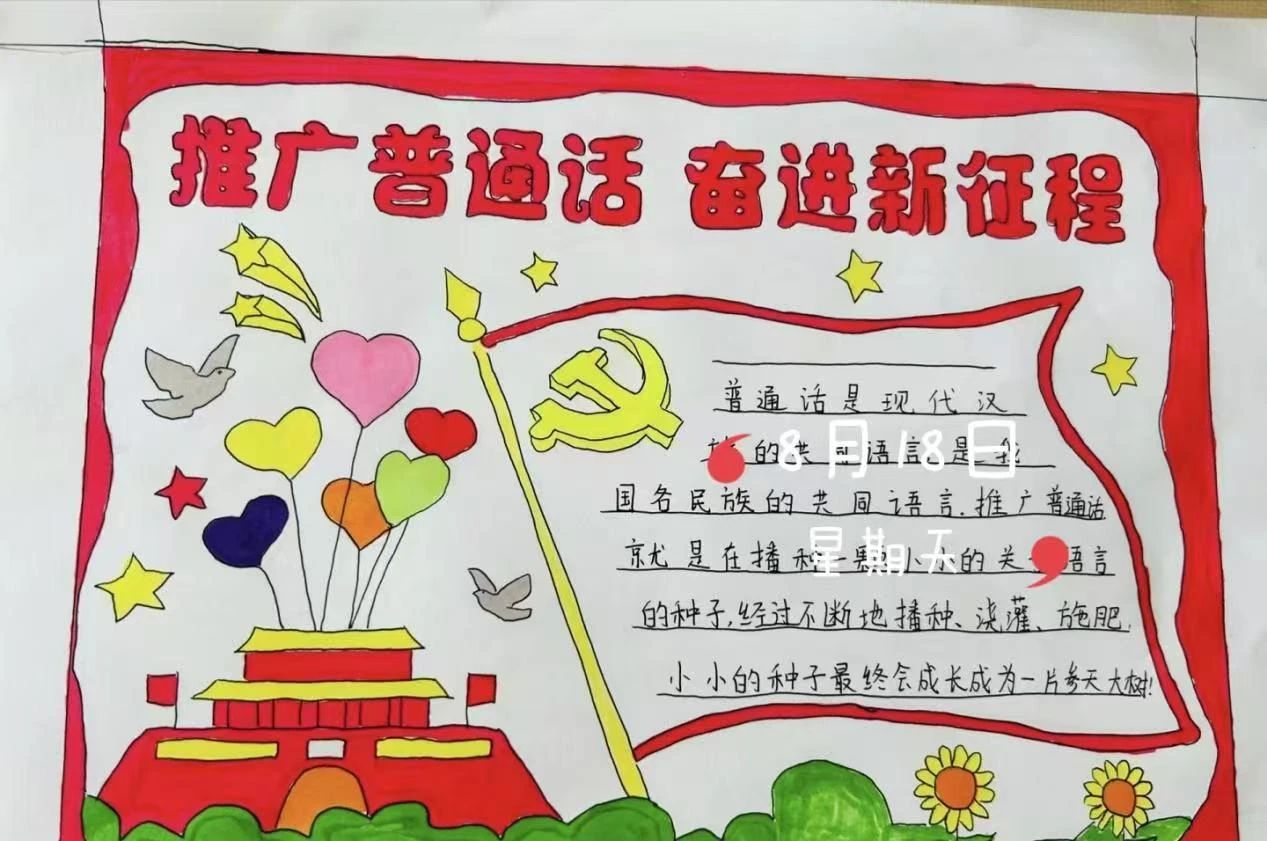 推广普通话 奋进新征程
普通话是现代汉
的共同语言是我
8月18日
国各民族的共同语言.推广普通话
就是在播种一 小小的关 语言
星期天
的种子,经过不断地播种、浇灌、施肥,
小小的种子最终会成长成为一片参天大树!